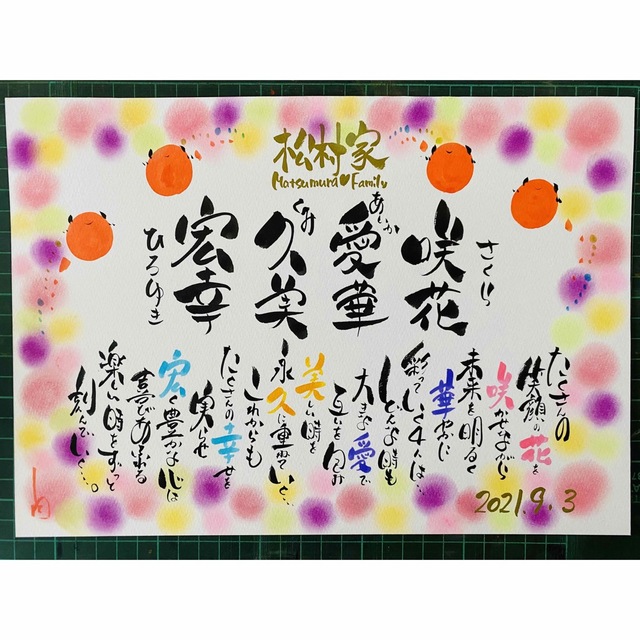 松村家
Matsumura♥Family
咲花
さくら
愛華
あいか
久美
くみ
宏幸
ひろゆき
たくさんの
笑顔の花を
咲かせながら
未来を明るく
華やかに
彩っていく4人は…
どんな時も
大きな愛で
互いを包み
美しい時を
永久に重ねていく…
これからも
たくさんの幸せを
実らせ
宏く豊かな心は
喜びあふれる
楽しい時をずっと
刻んでいく…。
2021.9.3